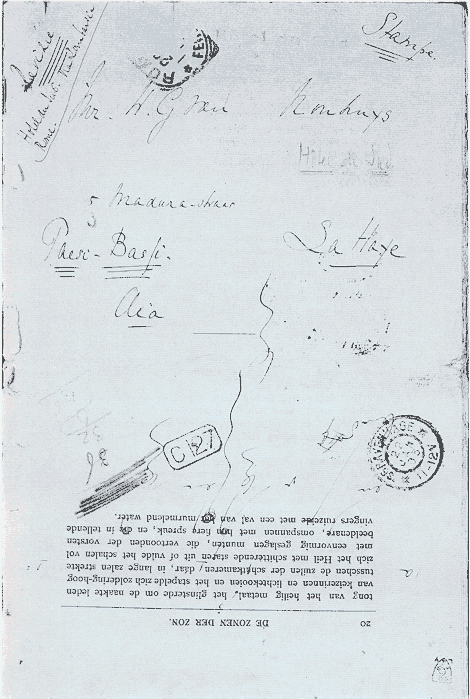 Stampe.
Hotel
Rome.
ROMA
FEV
Mr. W. G. van Nouhuys
5 Madura-straat
Paesi-Bassi.
La Haye
Aia
C 127
'S GRAVENHAGE
11-12V
20 DE ZONEN DER ZON.
tong van het heilig metaal, het glinsterde om de naakte leden
van keizerinnen en lichtekooien en het stapelde zich zoldering-hoog
tusschen de zuilen der schatkameren; daar, in lange zalen strekte
zich het Heil met schitterende staven uit of vulde het schalen vol
met eenvormig geslagen munten, die vertoonden der vorsten
beeldenaar, omspannen met hun fiere spreuk, en die in tellende
vingers ruizelde met een val van als murmelend water.